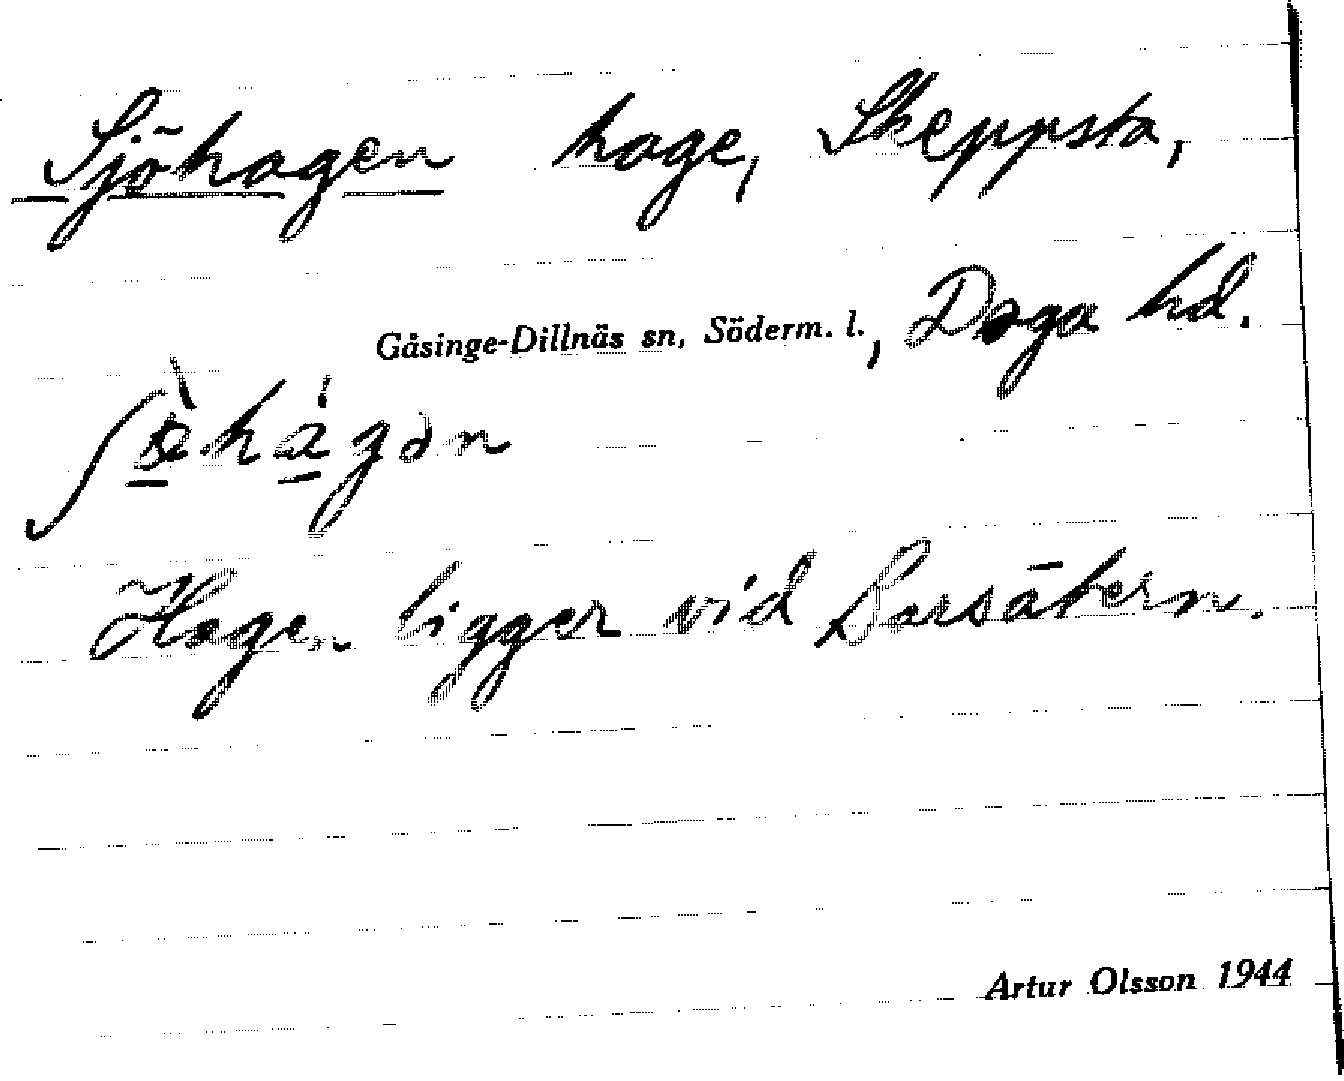 Sjöhagen hage, Skeppsta,
Gåsinge-Dillnäs sn, Söderm. l., Daga hd.
Hagen ligger vid Borsäkern.
Artur Olsson 1944